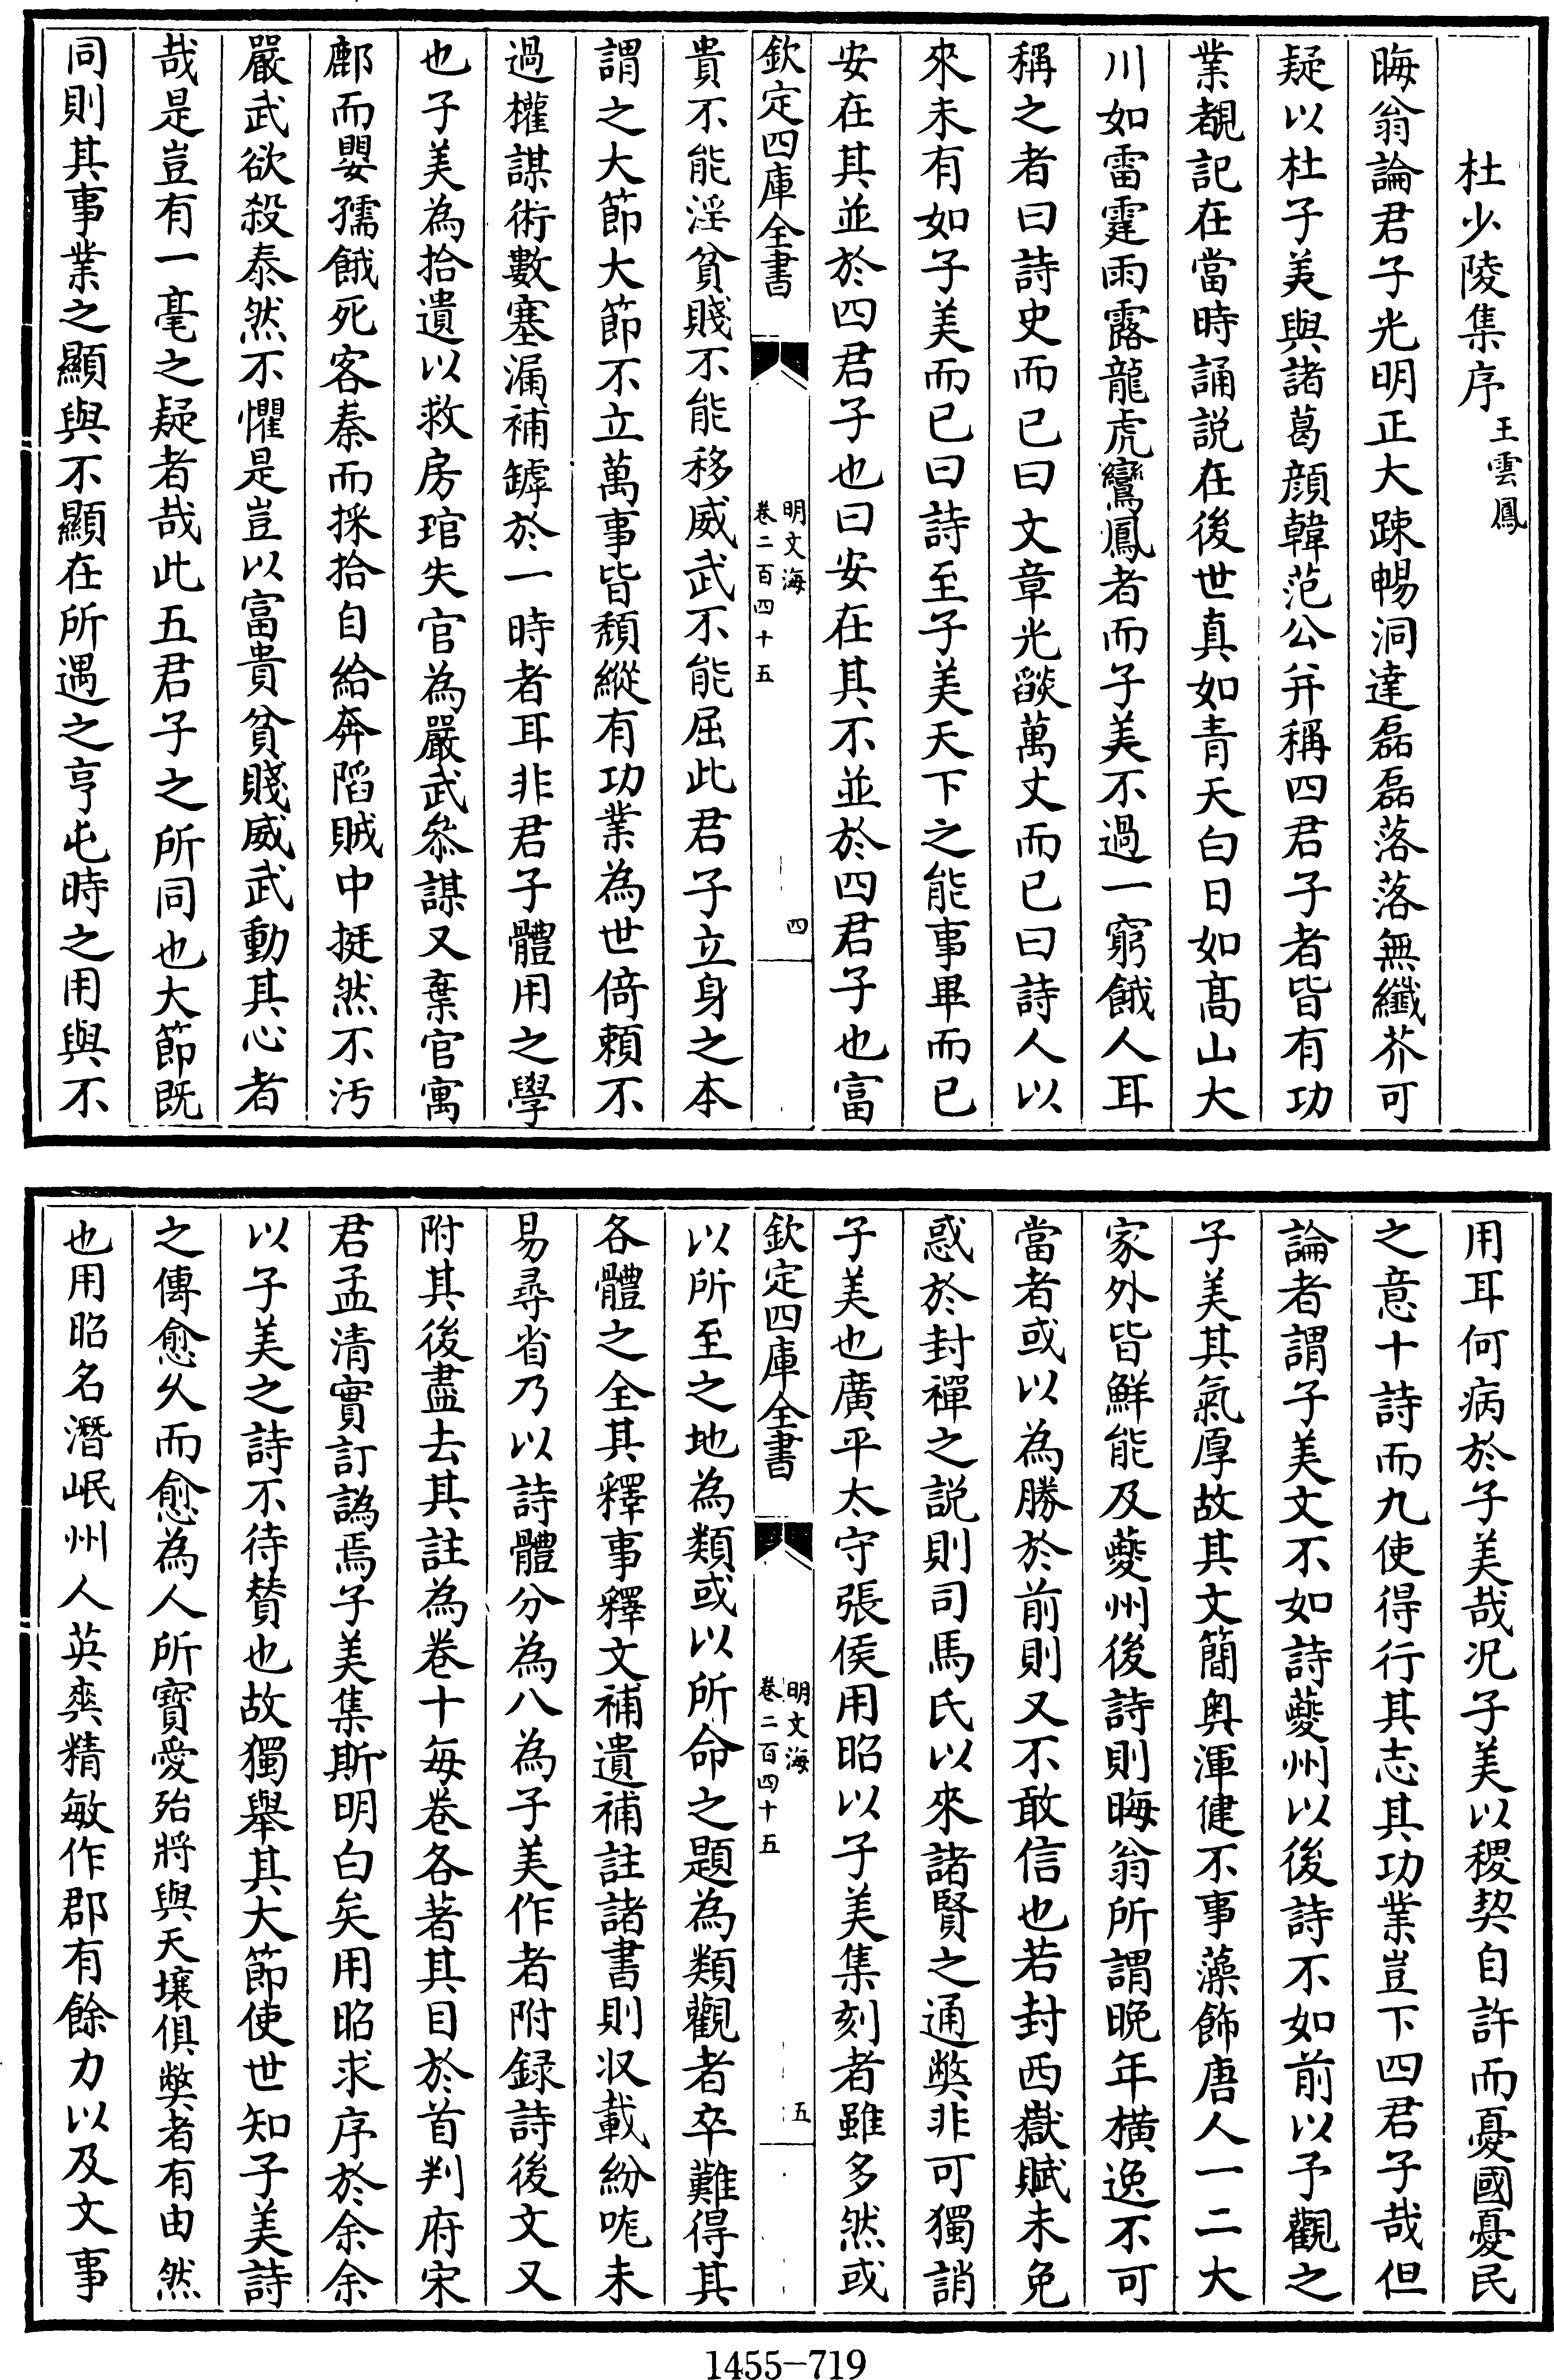 杜少陵集序王雲鳳
晦翁論君子光明正大踈暢洞達磊磊落落無纖芥可
疑以杜子美與諸葛顔韓范公并稱四君子者皆有功
業覩記在當時誦説在後世真如青天白日如髙山大
川如雷霆雨露龍虎鸞鳳者而子美不過一窮餓人耳
稱之者曰詩史而已曰文章光燄萬丈而已曰詩人以
來未有如子美而已曰詩至子美天下之能事畢而已
安在其並於四君子也曰安在其不並於四君子也富
欽定四庫全書
明文海
卷二百四十五
四
貴不能淫貧賤不能移威武不能屈此君子立身之本
謂之大節大節不立萬事皆頽縱有功業為世倚頼不
過權謀術數塞漏補罅於一時者耳非君子體用之學
也子美為拾遺以救房琯失官為嚴武叅謀又棄官寓
鄜而嬰孺餓死客秦而採拾自給奔陷賊中挺然不汚
嚴武欲殺泰然不懼是豈以富貴貧賤威武動其心者
哉是豈有一毫之疑者哉此五君子之所同也大節既
同則其事業之顯與不顯在所遇之亨屯時之用與不
用耳何病於子美哉况子美以稷契自許而憂國憂民
之意十詩而九使得行其志其功業豈下四君子哉但
論者謂子美文不如詩夔州以後詩不如前以予觀之
子美其氣厚故其文簡奥渾健不事藻飾唐人一二大
家外皆鮮能及夔州後詩則晦翁所謂晚年横逸不可
當者或以為勝於前則又不敢信也若封西嶽賦未免
惑於封禪之説則司馬氏以來諸賢之通弊非可獨誚
子美也廣平太守張侯用昭以子美集刻者雖多然或
欽定四庫全書
明文海
卷二百四十五
五
以所至之地為類或以所命之題為類觀者卒難得其
各體之全其釋事釋文補遺補註諸書則収載紛咙未
易尋省乃以詩體分為八為子美作者附録詩後文又
附其後盡去其註為卷十每卷各著其目於首判府宋
君孟清實訂譌焉子美集斯明白矣用昭求序於余余
以子美之詩不待賛也故獨舉其大節使世知子美詩
之傳愈乆而愈為人所寶愛殆將與天壤俱弊者有由然
也用昭名潛岷州人英爽精敏作郡有餘力以及文事
1455-719